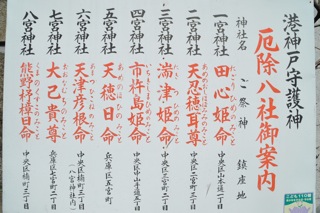 港神戸守護神
厄除八社御案内
神社名 ご祭神 鎮座地
一宮神社 田心姫命 中央区山本通一丁目
二宮神社 天忍穂耳尊 中央区二宮町一丁目
三宮神社 湍津姫命 中央区三宮町二丁目
四宮神社 市杵島姫命 中央区中山手通五丁目
五宮神社 天穂日命 兵庫区五宮町
六宮神社 天津彦根命 中央区楠町三丁目(八宮神社内)
七宮神社 大己貴尊 兵庫区七宮町二丁目
八宮神社 熊野杼樟日命 中央区楠町三丁目